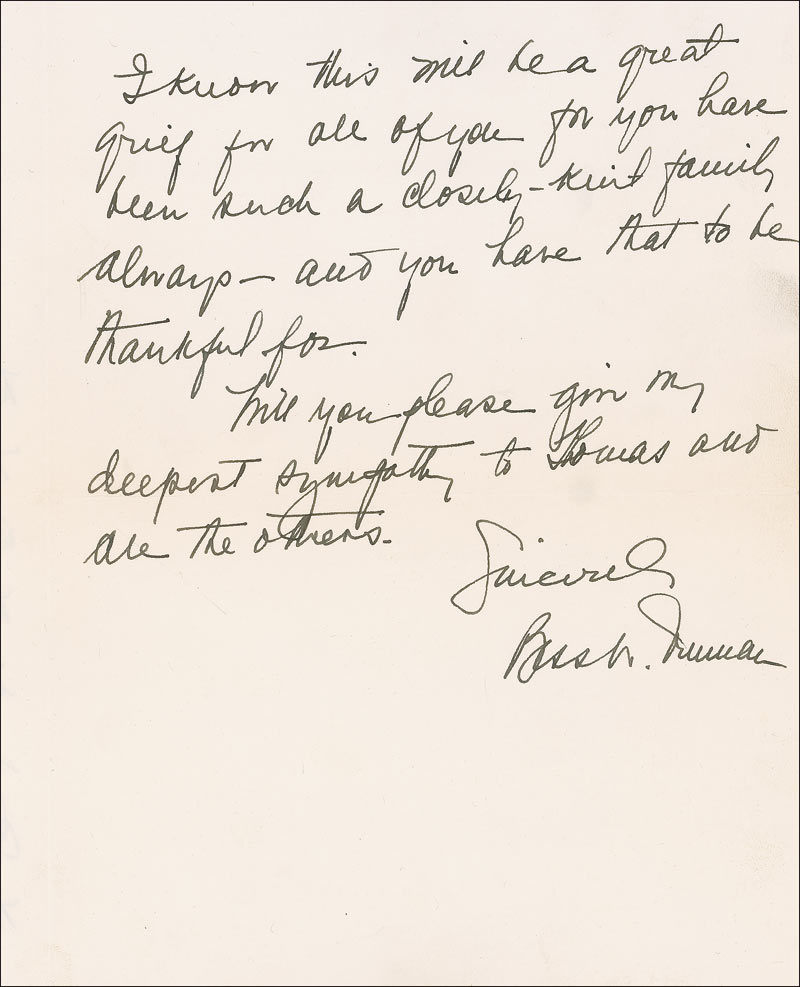 I know this will be a great
grief for all of you for you have
been such a closely-knit family
always— and you have that to be
thankful for.
Will you please give my
deepest sympathy to Thomas and
all the others.
Sincerely
Bess W. Truman